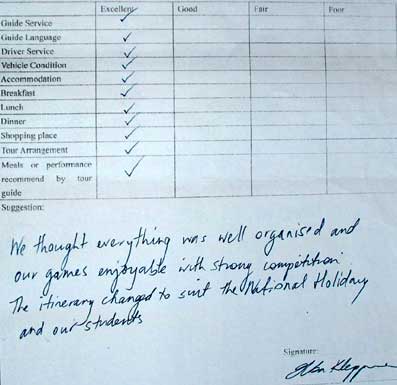 Excellent Good Fair Poor
Guide Service ✓
Guide Language ✓
Driver Service ✓
Vehicle Condition ✓
Accommodation ✓
Breakfast ✓
Lunch ✓
Dinner ✓
Shopping place ✓
Tour Arrangement ✓
Meals or performance ✓
recommend by tour
guide
Suggestion:
We thought everything was well organised and
our games enjoyable with strong competition.
The itinerary changed to suit the National Holiday
and our students
Signature: